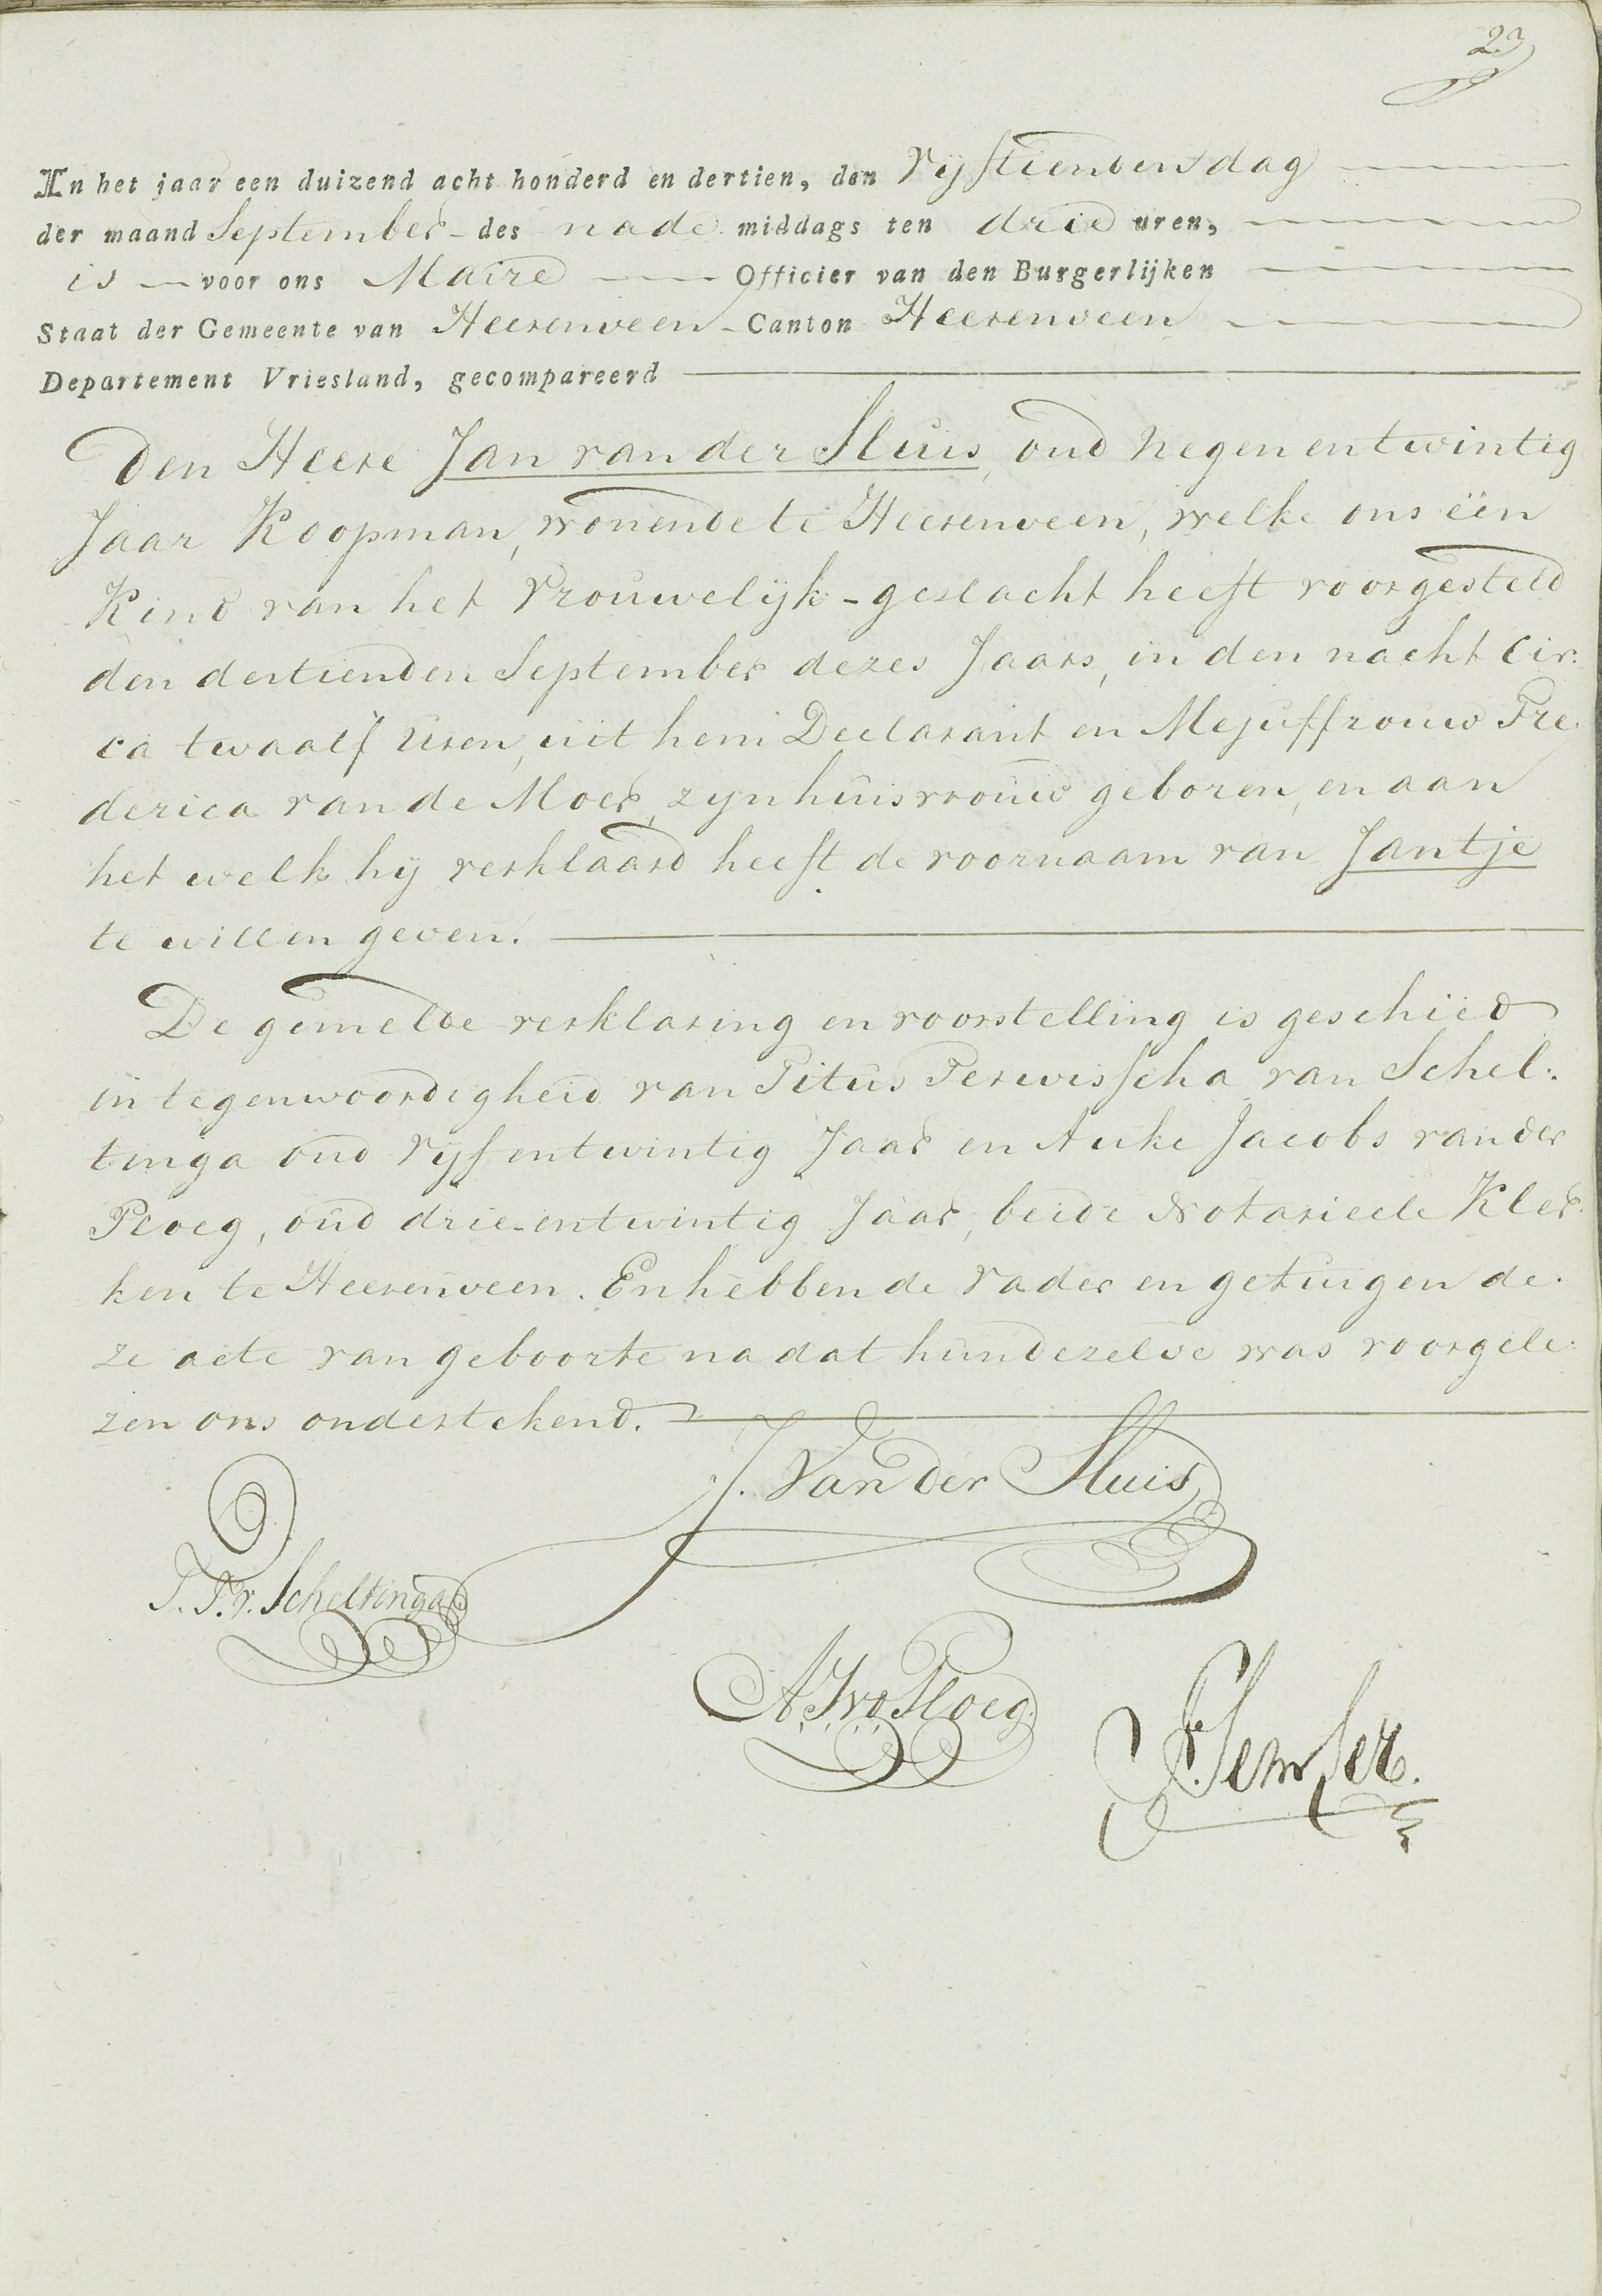 23
In het jaar een duizend acht honderd en dertien, den Vijftienden dag
der maand September - des nade middags ten drie uren,
is voor ons Maire Officier van den Burgerlijken
Staat der Gemeente van Heerenveen - Canton Heerenveen
Departement Vriesland, gecompareerd
Den Heere Jan van der Sluis, oud negen en twintig
Jaar Koopman, wonende te Heerenveen, welke ons één
Kind van het Vrouwelijk-geslacht heeft voorgesteld
den dertienden September dezes Jaars, in den nacht Cir:
ca twaalf Uren, uit hem Declarant en Mejuffrouw Fre:
derica van de Moer, zyn huisvrouw geboren, en aan
het welk hij verklaard heeft de voornaam van Jantje
te willen geven.
De gemelde verklaring en voorstelling is geschied
in tegenwoordigheid van Titus Terwisscha van Schel:
tinga oud Vijf en twintig Jaar en Auke Jacobs van der
Ploeg, oud drie-entwintig Jaar, beide Notarieele Kler:
ken te Heerenveen. En hebben de Vader en getuigen de:
ze acte van geboorte na dat hun dezelve was voorgele:
zen ons ondertekend.
J. Van der Sluis
T. T. v. Scheltinga
A. J. vd Ploeg.